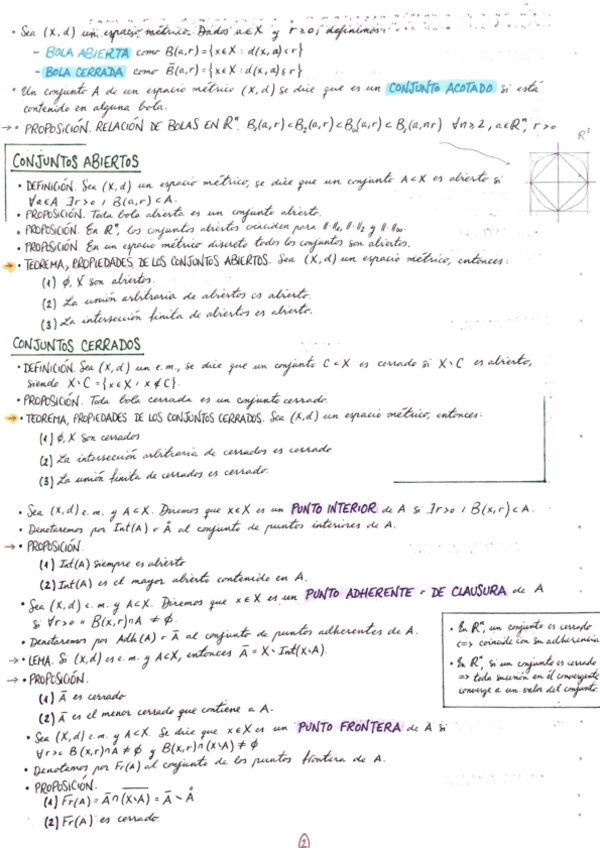 • Sea (X,d) un espacio métrico. Dados a∈X y r>0, definimos:
– BOLA ABIERTA como B(a,r)={x∈X : d(x,a)<r}
– BOLA CERRADA como B̄(a,r)={x∈X : d(x,a)≤r}
• Un conjunto A de un espacio métrico (X,d) se dice que es un CONJUNTO ACOTADO si está
contenido en alguna bola.
→ • PROPOSICIÓN. RELACIÓN DE BOLAS EN Rⁿ. B₁(a,r)⊂B₂(a,r)⊂B∞(a,r)⊂B₁(a,nr) ∀n≥2, a∈Rⁿ, r>0
R²
CONJUNTOS ABIERTOS
• DEFINICIÓN. Sea (X,d) un espacio métrico, se dice que un conjunto A⊂X es abierto si
∀a∈A ∃r>0 / B(a,r)⊂A.
• PROPOSICIÓN. Toda bola abierta es un conjunto abierto.
• PROPOSICIÓN. En Rⁿ, los conjuntos abiertos coinciden para ‖·‖₁, ‖·‖₂ y ‖·‖∞.
• PROPOSICIÓN. En un espacio métrico discreto todos los conjuntos son abiertos.
→ • TEOREMA, PROPIEDADES DE LOS CONJUNTOS ABIERTOS. Sea (X,d) un espacio métrico, entonces:
(1) ∅, X son abiertos.
(2) La unión arbitraria de abiertos es abierto.
(3) La intersección finita de abiertos es abierto.
CONJUNTOS CERRADOS
• DEFINICIÓN. Sea (X,d) un e.m., se dice que un conjunto C⊂X es cerrado si X\C es abierto,
siendo X\C={x∈X / x∉C}.
• PROPOSICIÓN. Toda bola cerrada es un conjunto cerrado.
→ • TEOREMA, PROPIEDADES DE LOS CONJUNTOS CERRADOS. Sea (X,d) un espacio métrico, entonces:
(1) ∅, X son cerrados
(2) La intersección arbitraria de cerrados es cerrado
(3) La unión finita de cerrados es cerrado.
• Sea (X,d) e.m. y A⊂X. Diremos que x∈X es un PUNTO INTERIOR de A si ∃r>0 / B(x,r)⊂A.
• Denotaremos por Int(A) o Å al conjunto de puntos interiores de A.
→ • PROPOSICIÓN.
(1) Int(A) siempre es abierto
(2) Int(A) es el mayor abierto contenido en A.
• Sea (X,d) e.m. y A⊂X. Diremos que x∈X es un PUNTO ADHERENTE o DE CLAUSURA de A
si ∀r>0 B(x,r)∩A ≠ ∅.
• Denotaremos por Adh(A) o Ā al conjunto de puntos adherentes de A.
→ • LEMA. Si (X,d) es e.m. y A⊂X, entonces Ā = X\Int(X\A).
→ • PROPOSICIÓN.
(1) Ā es cerrado
(2) Ā es el menor cerrado que contiene a A.
• En Rⁿ, un conjunto es cerrado
<=> coincide con su adherencia
• En Rⁿ, si un conjunto es cerrado
=> toda sucesión en él convergente
converge a un valor del conjunto.
• Sea (X,d) e.m. y A⊂X. Se dice que x∈X es un PUNTO FRONTERA de A si
∀r>0 B(x,r)∩A ≠ ∅ y B(x,r)∩(X\A) ≠ ∅
• Denotamos por Fr(A) al conjunto de los puntos frontera de A.
• PROPOSICIÓN.
(1) Fr(A) = Ā∩(X\A)‾ = Ā \ Å
(2) Fr(A) es cerrado.
2